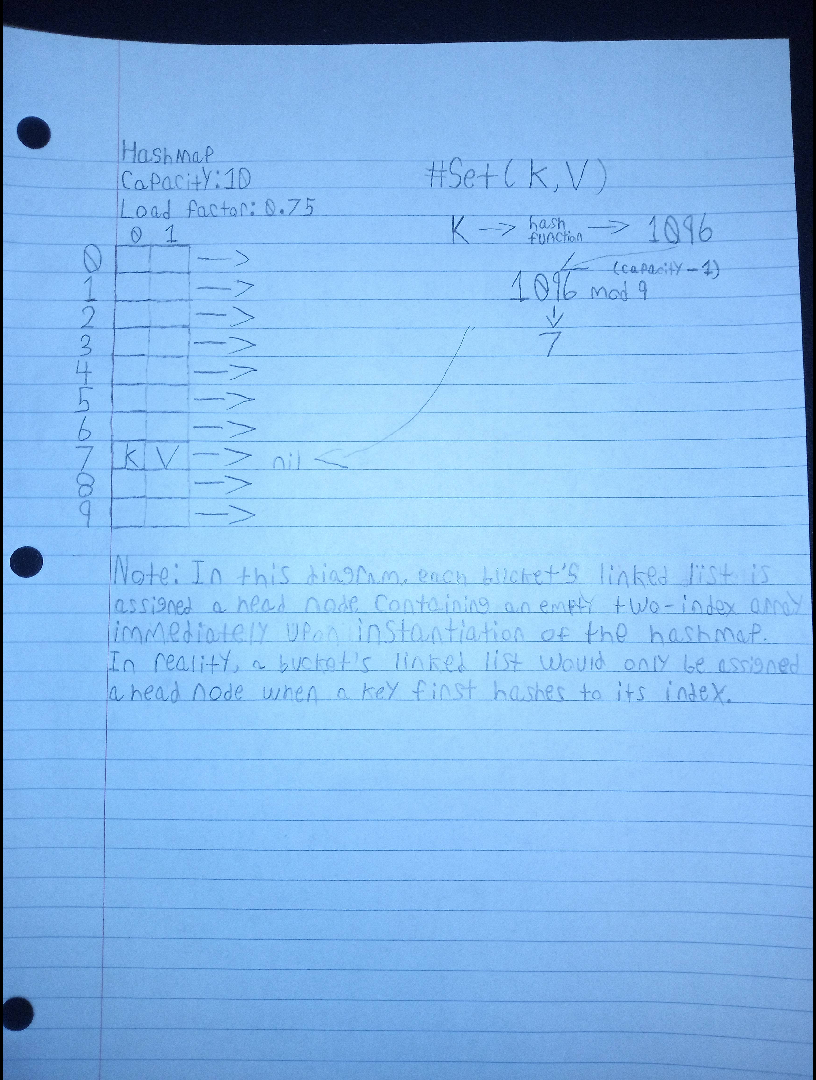 Hashmap
Capacity: 10
Load factor: 0.75
#Set(K,V)
K → hash function → 1096
(capacity - 1)
1096 mod 9
↓
7
0 1
0 →
1 →
2 →
3 →
4 →
5 →
6 →
7 K V → nil
8 →
9 →
Note: In this diagram, each bucket's linked list is
assigned a head node containing an empty two-index array
immediately upon instantiation of the hashmap.
In reality, a bucket's linked list would only be assigned
a head node when a key first hashes to its index.